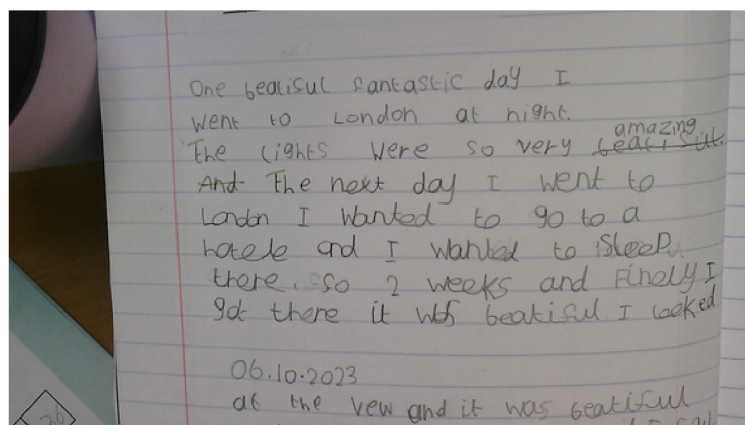 One beatisul fantastic day I
went to London at night.
amazing.
The lights were so very beatisul.
And The next day I went to
London I wanted to go to a
hotele and I wanted to Sleep
there. so 2 weeks and Finely I
got there it was beatisul I looked
06.10.2023
at the vew and it was beatiful